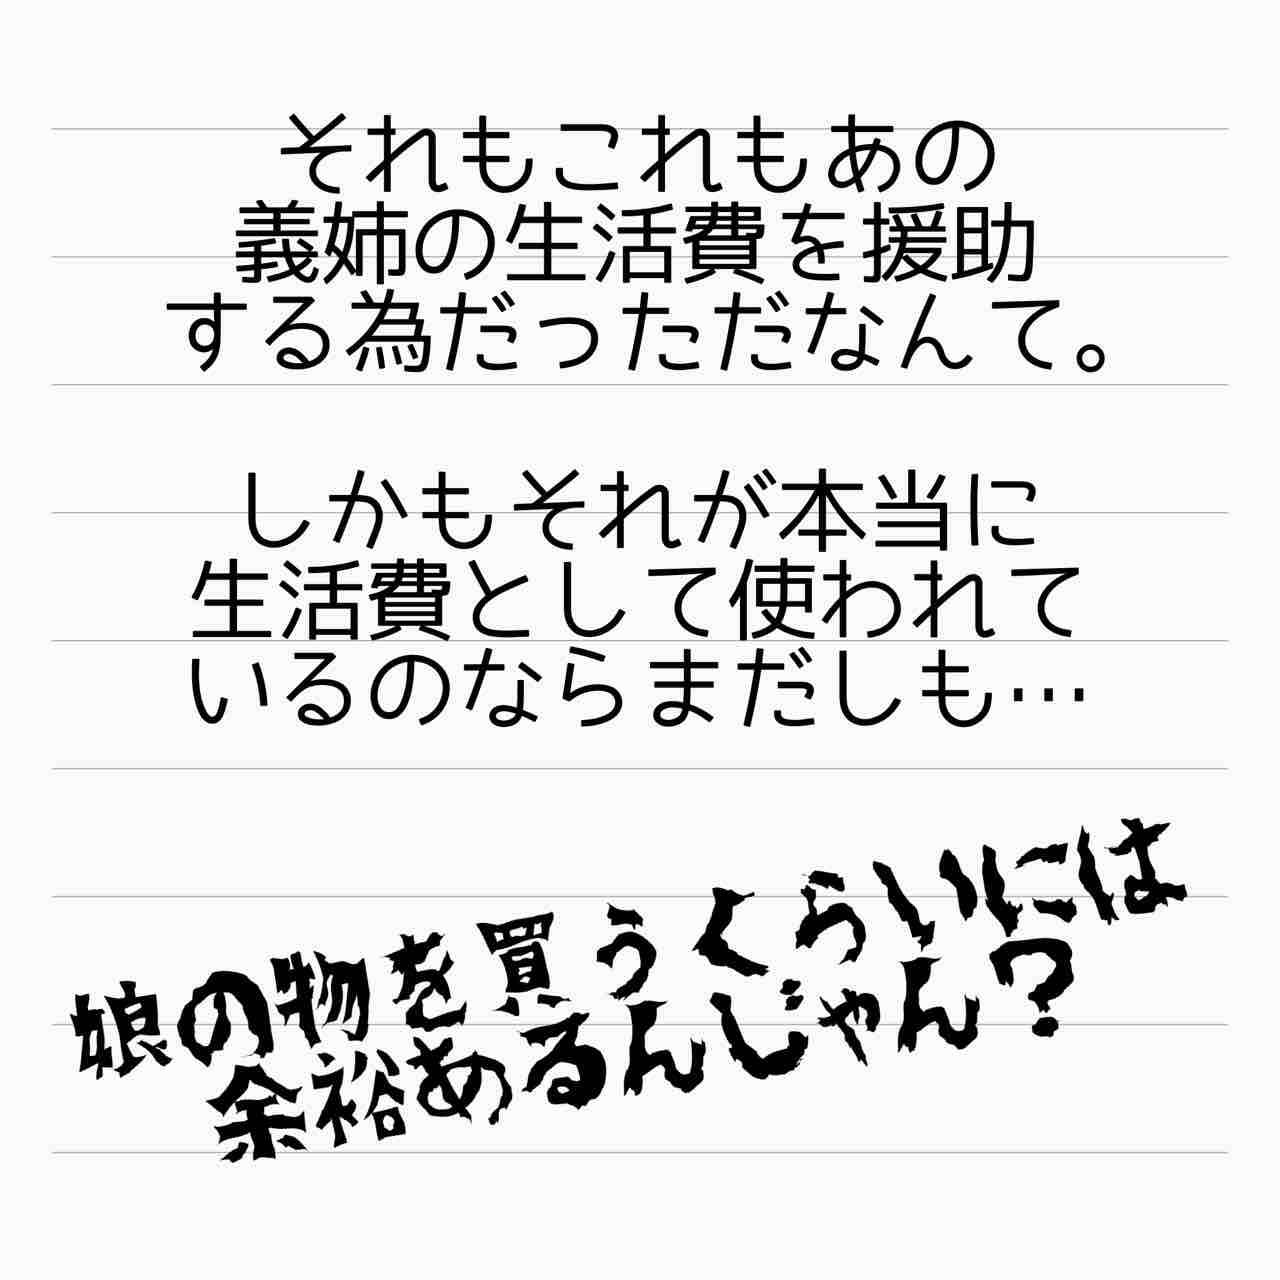 それもこれもあの
義姉の生活費を援助
する為だっただなんて。
しかもそれが本当に
生活費として使われて
いるのならまだしも…
娘の物を買うくらいには
余裕あるんじゃん?